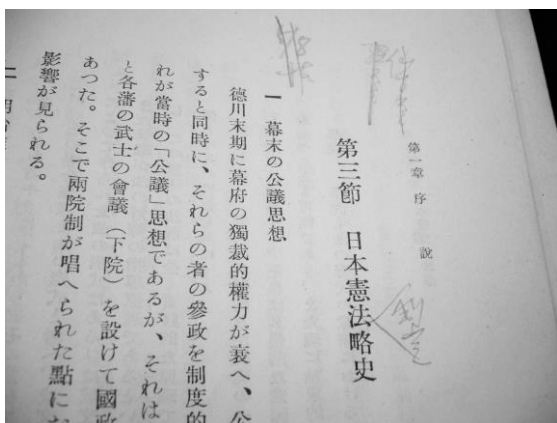 第一章 序說
第三節 日本憲法略史
一 幕末の公議思想
德川末期に幕府の獨裁的權力が衰へ、公
すると同時に、それらの者の參政を制度的
れが當時の「公議」思想であるが、それは
と各藩の武士の會議（下院）を設けて國政
あつた。そこで兩院制が唱へられた點にお
影響が見られる。